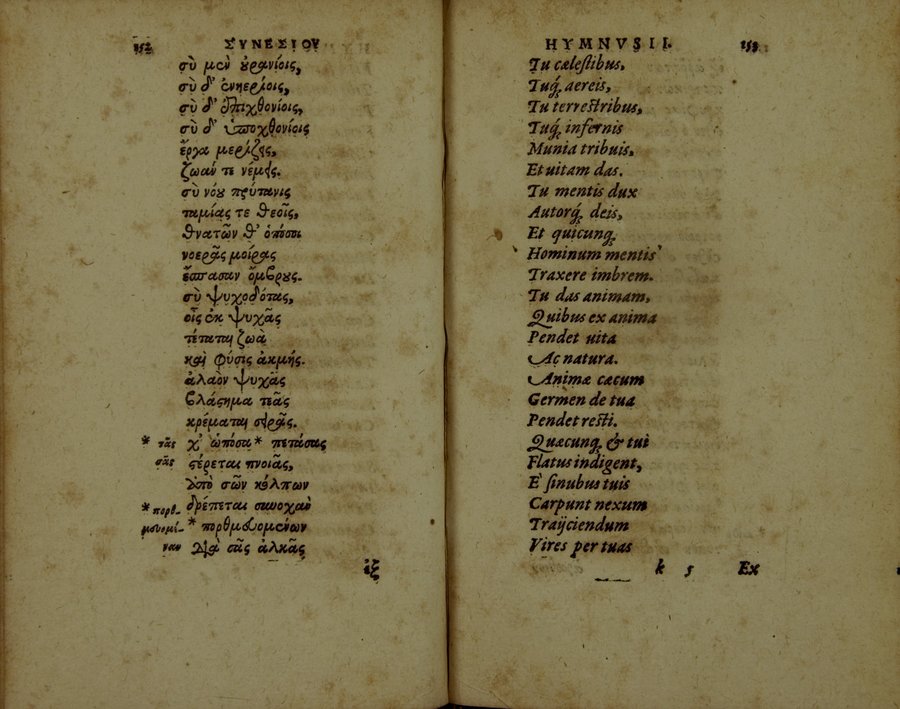 152 ΣΥΝΕΣΙΟΥ
σὺ μὲν οὐρανίοις,
σὺ δ' ἐνηερίοις,
σὺ δ' ἐπιχθονίοις,
σὺ δ' ὑποχθονίοις
ἔργα μερίζεις,
ζωάν τε νέμεις.
σὺ νόου πρύτανις
ταμίας τε θεοῖς,
θνατῶν θ' ὁπόσοι
νοερᾶς μοίρας
ἔσπασαν ὄμβρους.
σὺ ψυχοδότας,
οἷς ἐκ ψυχᾶς
τέταται ζωὰ
καὶ φύσις ἀκμής.
ἀλαὸν ψυχᾶς
βλάστημα τεᾶς
κρέμαται σειρᾶς.
* τᾶς χ' ὡπόσα * πετάσας
σᾶς στέρεται πνοιᾶς,
ἀπὸ σῶν κόλπων
δρέπεται συνοχὰν
* πορθ- * πορθμευομένων
μευομέ-
ναν διὰ σᾶς ἀλκᾶς
ἐξ
HYMNVS II. 153
Tu cælestibus,
Tuq́; aereis,
Tu terrestribus,
Tuq́; infernis
Munia tribuis,
Et uitam das.
Tu mentis dux
Autorq́; deis,
Et quicunq;
Hominum mentis
Traxere imbrem.
Tu das animam,
Quibus ex anima
Pendet uita
Ac natura.
Animæ cæcum
Germen de tua
Pendet resti.
Quæcunq; & tui
Flatus indigent,
E' sinubus tuis
Carpunt nexum
Traijciendum
Vires per tuas
k 5 Ex